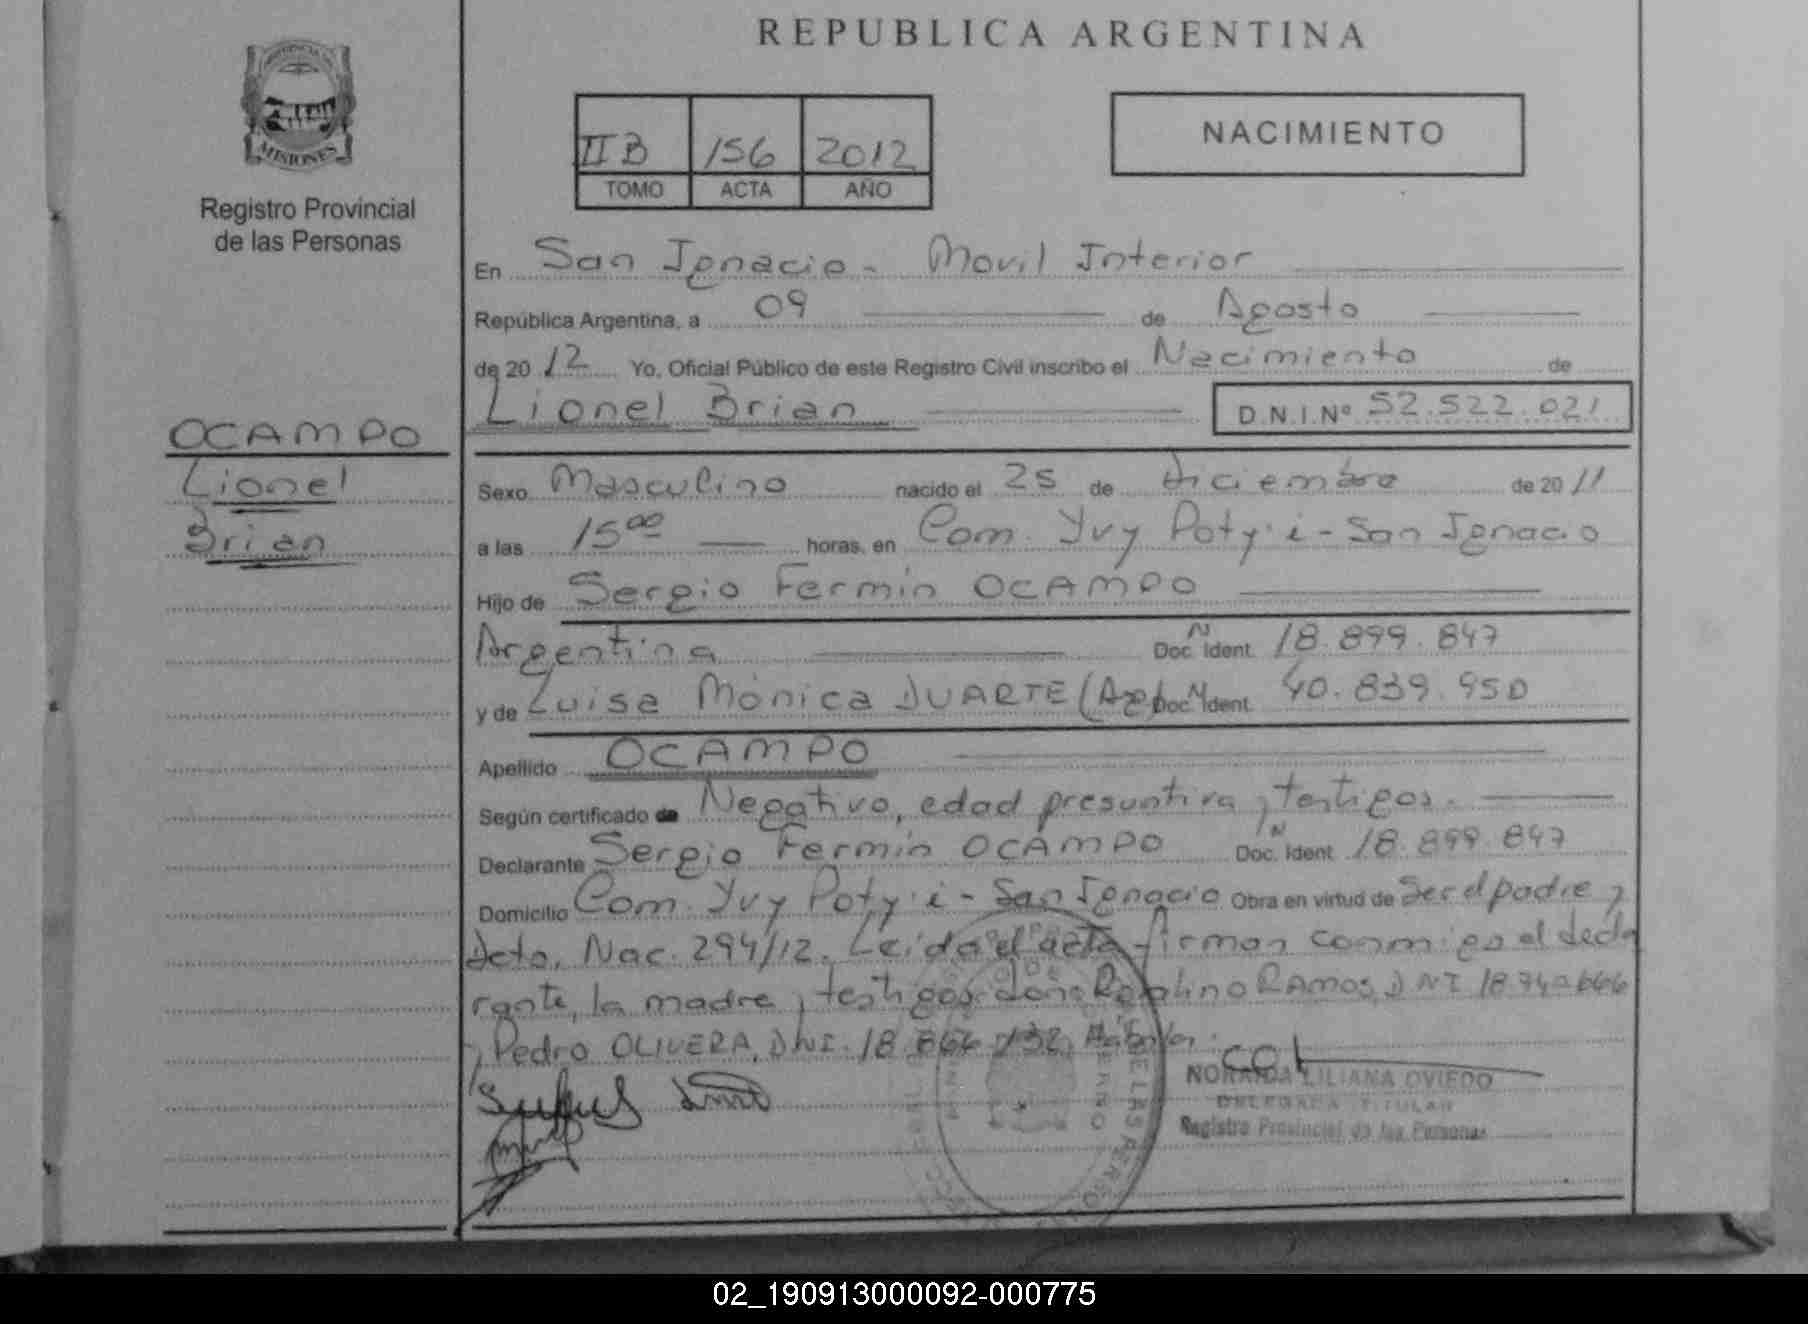 REPUBLICA ARGENTINA
MISIONES
Registro Provincial
de las Personas
II B 156 2012
TOMO ACTA AÑO
NACIMIENTO
En San Ignacio - Movil Interior
República Argentina, a 09 de Agosto
de 2012 Yo, Oficial Público de este Registro Civil inscribo el Nacimiento de
Lionel Brian D.N.I.Nº 52.522.021
OCAMPO
Lionel
Brian
Sexo Masculino nacido el 25 de diciembre de 2011
a las 15 00 horas, en Com. Yvy Poty'i - San Ignacio
Hijo de Sergio Fermin OCAMPO
Argentina Doc. N Ident. 18.899.847
y de Luisa Mónica DUARTE (Arg) Doc. N Ident. 40.839.950
Apellido OCAMPO
Según certificado de Negativo, edad presuntiva y testigos.
Declarante Sergio Fermin OCAMPO Doc. N Ident. 18.899.847
Domicilio Com. Yvy Poty'i - San Ignacio Obra en virtud de Ser el padre y
Acta, Nac. 294/12. Leida el acta firman conmigo el decla
rante, la madre y testigos: RAMOS, DNI 18.740.666
y Pedro OLIVERA, DNI. 18
NORAIDA LILIANA OVIEDO
DELEGADA TITULAR
Registro Provincial de las Personas
02_190913000092-000775